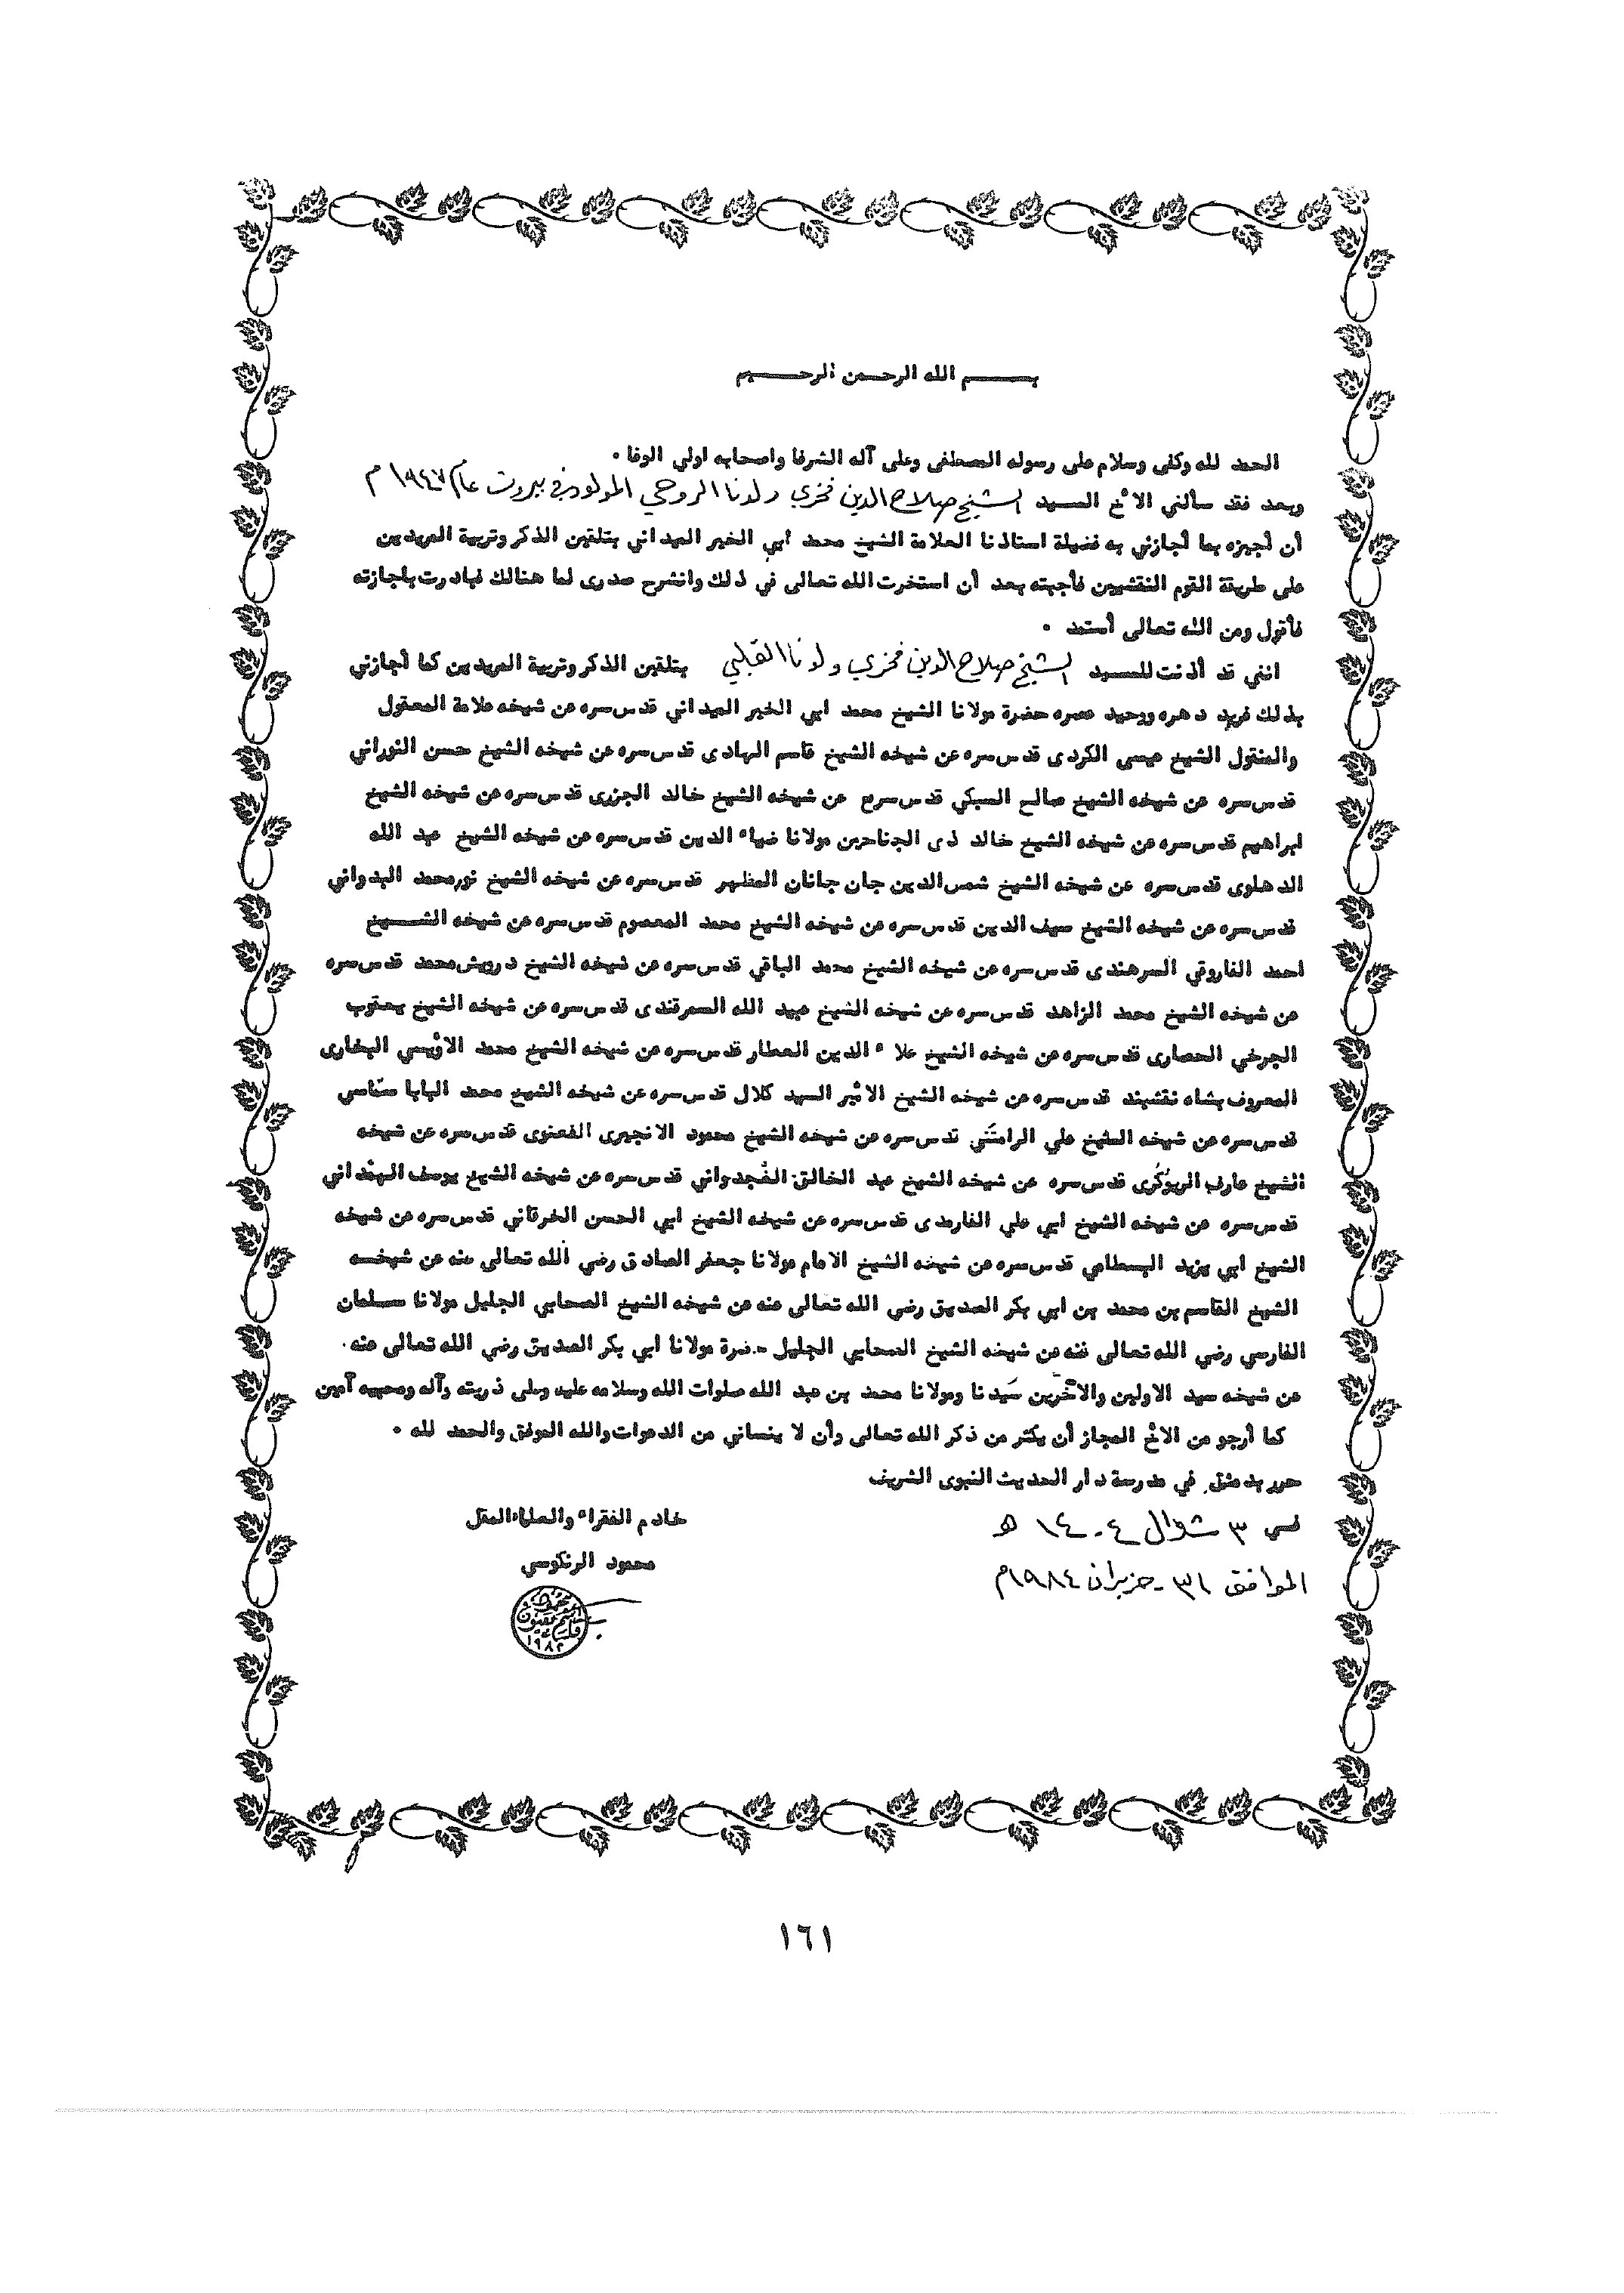 بسم الله الرحمن الرحيم
الحمد لله وكفى وسلام على رسوله المصطفى وعلى آله الشرفا واصحابه اولي الوفا .
وبعد فقد سألني الأخ السيد الشيخ صلاح الدين فخري ولدنا الروحي المولود في بيروت عام ١٩٤٧ م
أن أجيزه بما أجازني به فضيلة استاذنا العلامة الشيخ محمد ابي الخير الميداني بتلقين الذكر وتربية المريدين
على طريقة القوم النقشبيين فأجبته بعد أن استخرت الله تعالى في ذلك وانشرح صدرى لما هنالك فبادرت باجازته
فأقول ومن الله تعالى أستمد .
انني قد أذنت للسيد الشيخ صلاح الدين فخري ولدنا القلبي بتلقين الذكر وتربية المريدين كما أجازني
بذلك فريد دهره ووحيد عصره حضرة مولانا الشيخ محمد ابي الخير الميداني قدس سره عن شيخه علامة المعقول
والمنقول الشيخ عيسى الكردى قدس سره عن شيخه الشيخ قاسم الهادى قدس سره عن شيخه الشيخ حسن النوراني
قدس سره عن شيخه الشيخ صالح السبكي قدس سره عن شيخه الشيخ خالد الجزرى قدس سره عن شيخه الشيخ
ابراهيم قدس سره عن شيخه الشيخ خالد ذى الجناحين مولانا ضياء الدين قدس سره عن شيخه الشيخ عبد الله
الدهلوى قدس سره عن شيخه الشيخ شمس الدين جان جانان المظهر قدس سره عن شيخه الشيخ نور محمد البدواني
قدس سره عن شيخه الشيخ سيف الدين قدس سره عن شيخه الشيخ محمد المعصوم قدس سره عن شيخه الشيخ
احمد الفاروقي السرهندى قدس سره عن شيخه الشيخ محمد الباقي قدس سره عن شيخه الشيخ درويش محمد قدس سره
عن شيخه الشيخ محمد الزاهد قدس سره عن شيخه الشيخ عبيد الله السمرقندى قدس سره عن شيخه الشيخ يعقوب
الجرخي الحصارى قدس سره عن شيخه الشيخ علاء الدين العطار قدس سره عن شيخه الشيخ محمد الاويسي البخارى
المعروف بشاه نقشبند قدس سره عن شيخه الشيخ الامير السيد كلال قدس سره عن شيخه الشيخ محمد البابا سماسي
قدس سره عن شيخه الشيخ علي الرامتني قدس سره عن شيخه الشيخ محمود الانجيرى الفغنوى قدس سره عن شيخه
الشيخ عارف الريوكرى قدس سره عن شيخه الشيخ عبد الخالق الغجدواني قدس سره عن شيخه الشيخ يوسف الهمداني
قدس سره عن شيخه الشيخ ابي علي الفارمدى قدس سره عن شيخه الشيخ ابي الحسن الخرقاني قدس سره عن شيخه
الشيخ ابي يزيد البسطامي قدس سره عن شيخه الشيخ الامام مولانا جعفر الصادق رضي الله تعالى عنه عن شيخه
الشيخ القاسم بن محمد بن ابي بكر الصديق رضي الله تعالى عنه عن شيخه الشيخ الصحابي الجليل مولانا سلمان
الفارسي رضي الله تعالى عنه عن شيخه الشيخ الصحابي الجليل حضرة مولانا ابي بكر الصديق رضي الله تعالى عنه .
عن شيخه سيد الاولين والآخرين سيدنا ومولانا محمد بن عبد الله صلوات الله وسلامه عليه وعلى ذريته وآله ومحبيه آمين
كما أرجو من الأخ المجاز أن يكثر من ذكر الله تعالى وأن لا ينساني من الدعوات والله الموفق والحمد لله .
حرر بدمشق في مدرسة دار الحديث النبوى الشريف
في ٣ شوال ١٤٠٤ ه
خادم الفقراء والعلماء المقل
الموافق ٣١ - حزيران ١٩٨٤م
محمود الرنكوسي
١٦١